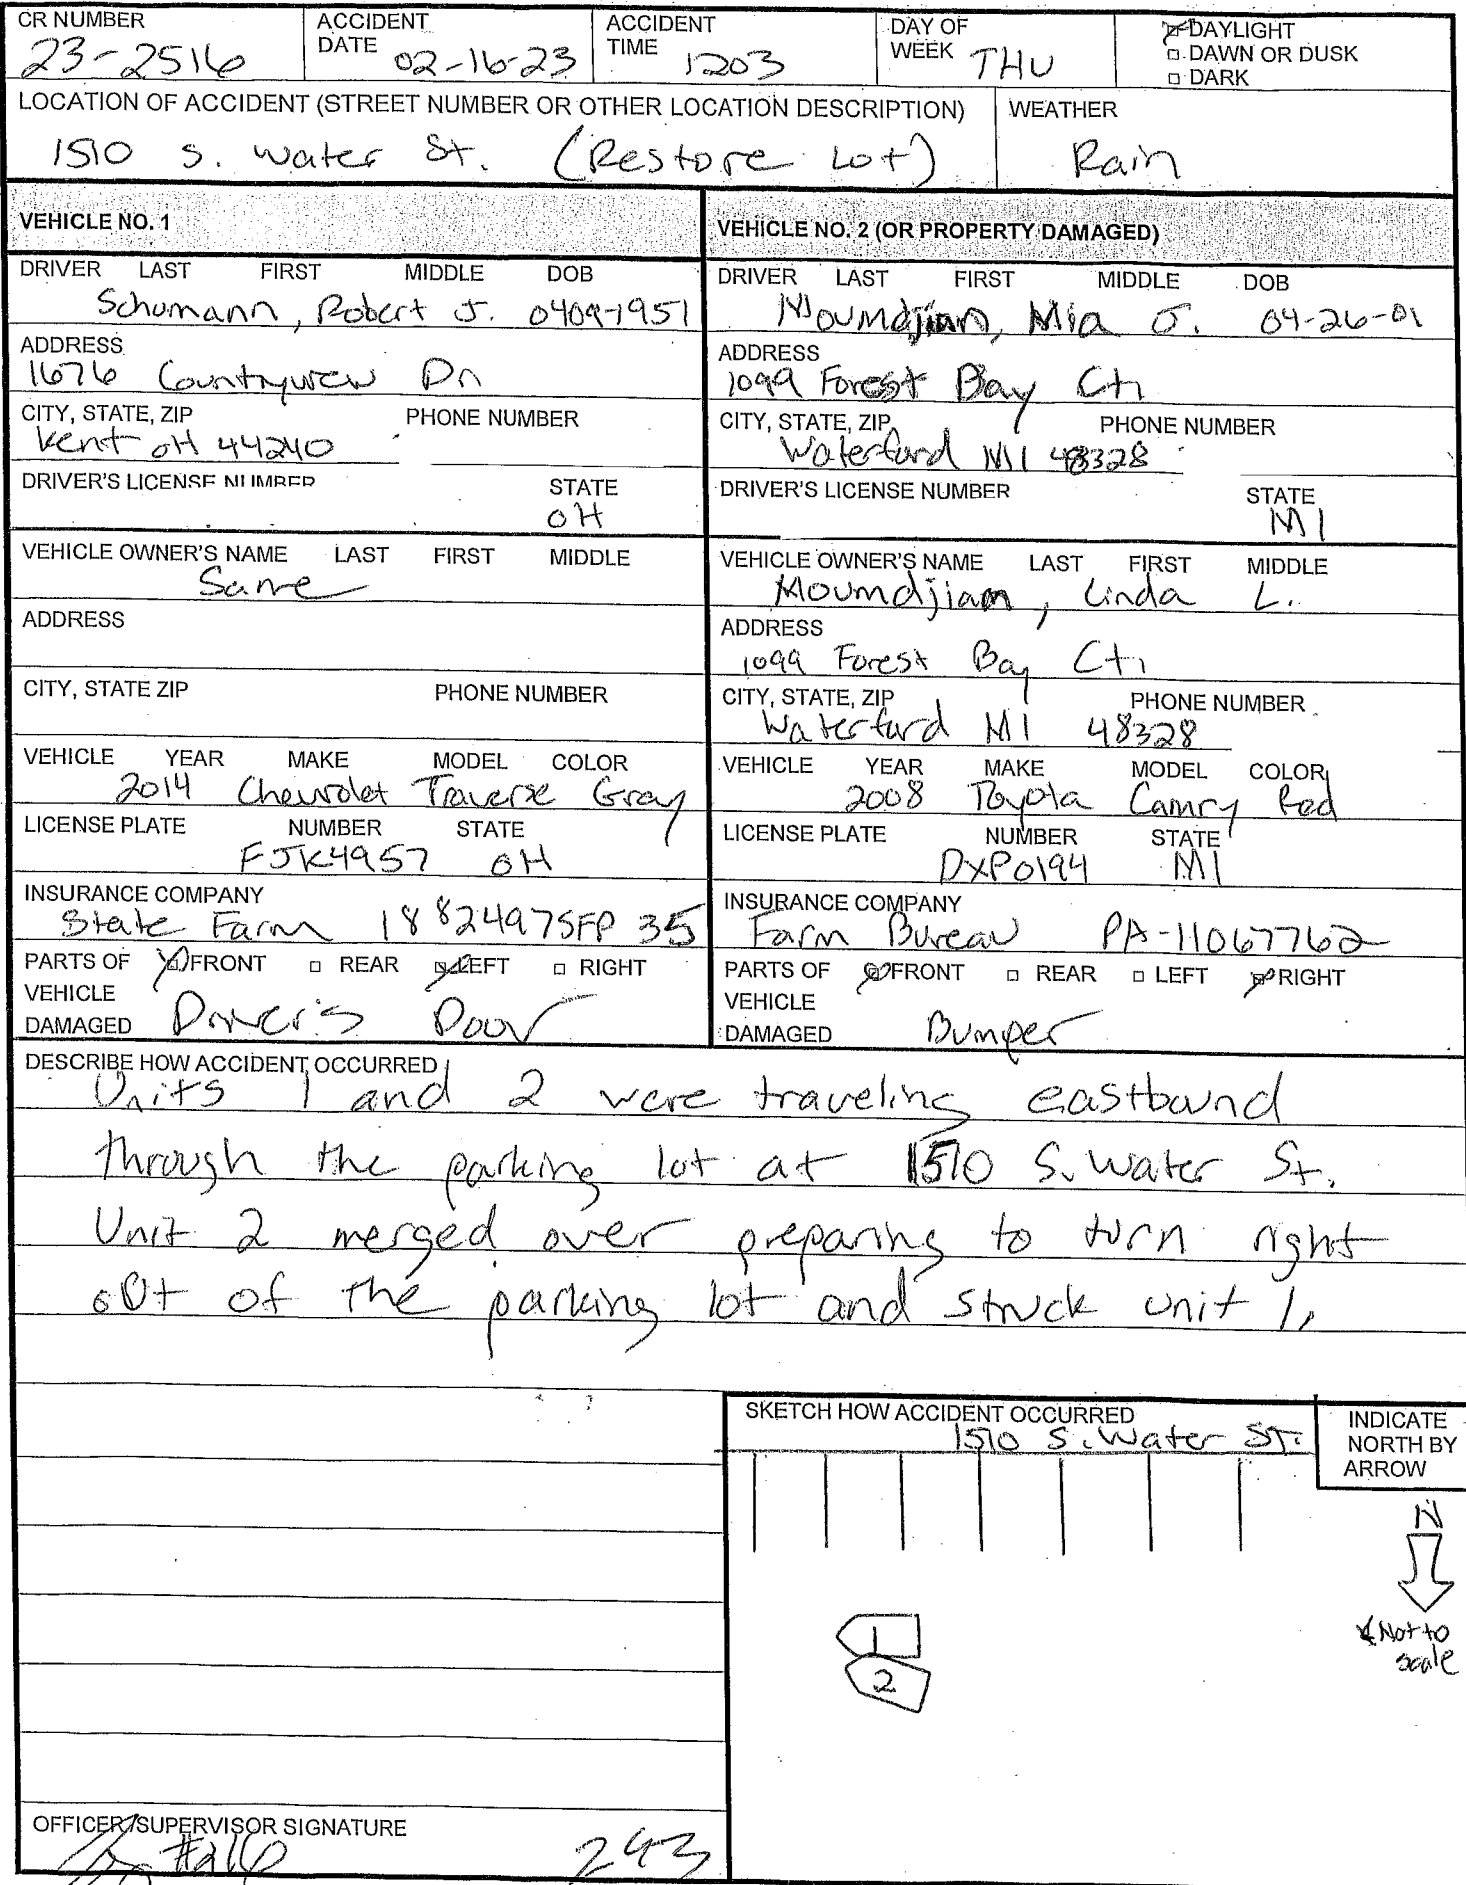 CR NUMBER ACCIDENT DATE ACCIDENT TIME DAY OF WEEK DAYLIGHT
23-2516 02-16-23 1203 THU DAWN OR DUSK
DARK
LOCATION OF ACCIDENT (STREET NUMBER OR OTHER LOCATION DESCRIPTION) WEATHER
1510 S. Water St. (Restore Lot) Rain
VEHICLE NO. 1
DRIVER LAST FIRST MIDDLE DOB
Schumann, Robert J. 0409-1951
ADDRESS
1676 Countryview Dr
CITY, STATE, ZIP PHONE NUMBER
Kent OH 44240
DRIVER'S LICENSE NUMBER STATE
OH
VEHICLE OWNER'S NAME LAST FIRST MIDDLE
Same
ADDRESS
CITY, STATE ZIP PHONE NUMBER
VEHICLE YEAR MAKE MODEL COLOR
2014 Chevrolet Traverse Gray
LICENSE PLATE NUMBER STATE
FJK4957 OH
INSURANCE COMPANY
State Farm 1882497SFP 35
PARTS OF VEHICLE DAMAGED FRONT REAR LEFT RIGHT
Driver's Door
VEHICLE NO. 2 (OR PROPERTY DAMAGED)
DRIVER LAST FIRST MIDDLE DOB
Moumdjian, Mia J. 04-26-01
ADDRESS
1099 Forest Bay Ct.
CITY, STATE, ZIP PHONE NUMBER
Waterford MI 48328
DRIVER'S LICENSE NUMBER STATE
MI
VEHICLE OWNER'S NAME LAST FIRST MIDDLE
Moumdjian, Linda L.
ADDRESS
1099 Forest Bay Ct.
CITY, STATE, ZIP PHONE NUMBER
Waterford MI 48328
VEHICLE YEAR MAKE MODEL COLOR
2008 Toyota Camry Red
LICENSE PLATE NUMBER STATE
DXP0194 MI
INSURANCE COMPANY
Farm Bureau PA-11067762
PARTS OF VEHICLE DAMAGED FRONT REAR LEFT RIGHT
Bumper
DESCRIBE HOW ACCIDENT OCCURRED
Units 1 and 2 were traveling eastbound
through the parking lot at 1510 S. Water St.
Unit 2 merged over preparing to turn right
out of the parking lot and struck unit 1.
SKETCH HOW ACCIDENT OCCURRED
1510 S. Water St.
INDICATE
NORTH BY
ARROW
N
Not to
scale
1
2
OFFICER/SUPERVISOR SIGNATURE
#216 243